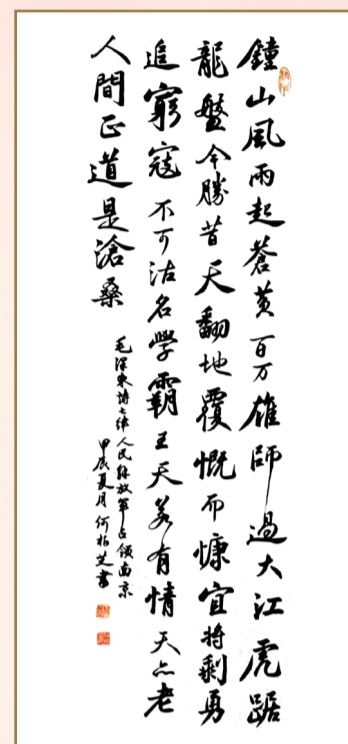 鐘山風雨起蒼黃百万雄師過大江虎踞
龍盤今勝昔天翻地覆慨而慷宜將剩勇
追窮寇不可沽名學霸王天若有情天亦老
人間正道是滄桑
毛澤東詩七律人民解放軍占領南京
甲辰夏月何柏芝書